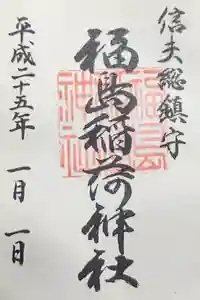 信夫総鎮守
福島稲荷神社
平成二十五年 一月 一日